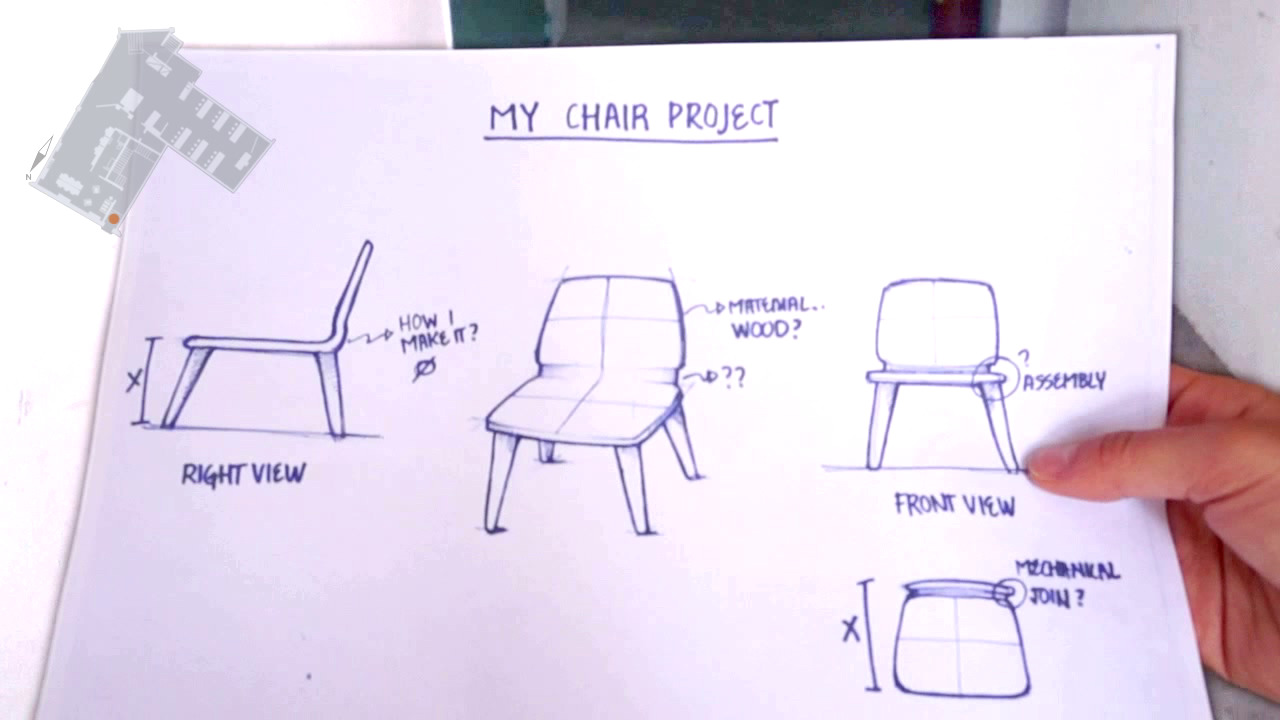 N
MY CHAIR PROJECT
HOW I
MAKE IT?
X
RIGHT VIEW
MATERIAL..
WOOD?
??
?
ASSEMBLY
FRONT VIEW
MECHANICAL
JOIN?
X